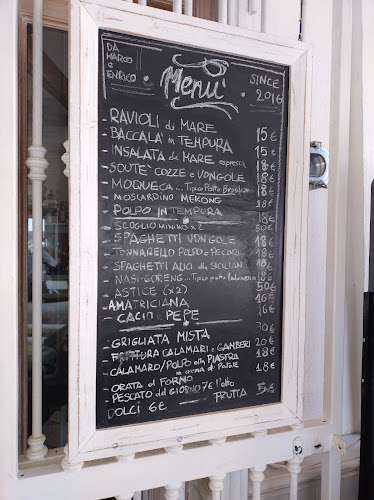 DA MARCO
E
ENRICO
Menù
SINCE
2016
- RAVIOLI di MARE 15€
- BACCALA' in TEMPURA 15€
- INSALATA di MARE espressa 18€
- SOUTE' COZZE e VONGOLE 18€
- MOQUECA ... Tipico Piatto Brasiliano 18€
- MOSCARDINO MEKONG 18€
- POLPO IN TEMPURA 18€
- SCOGLIO MINIMO x2 50€
- SPAGHETTI VONGOLE 18€
- TONNARELLO POLPO e PECORINO 18€
- SPAGHETTI ALICI alla SICILIANA 18€
- NASI-GORENG ... Tipico piatto Indonesiano
- ASTICE (x2)
- AMATRICIANA
- CACIO e PEPE 16€
- GRIGLIATA MISTA 30€
- FRITTURA CALAMARI e GAMBERI 20€
- CALAMARO/POLPO alla PIASTRA 18€
in crema di Patate
- ORATA al FORNO 18€
- PESCATO del GIORNO 7€ l'etto
- DOLCI 6€ FRUTTA 5€